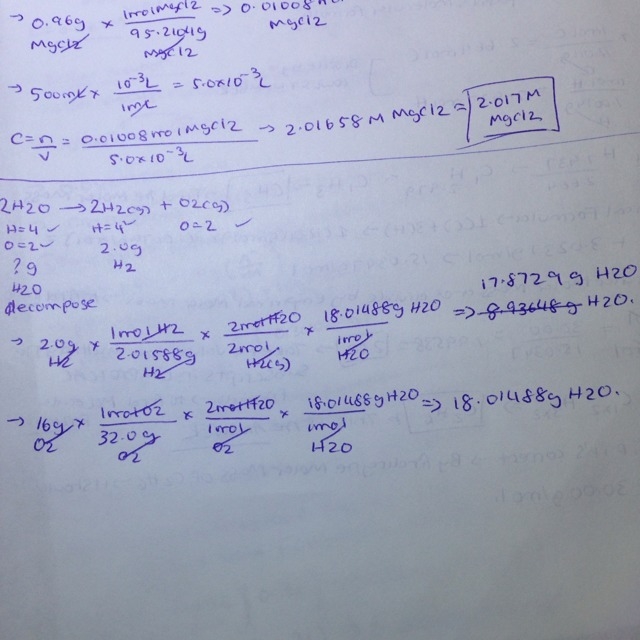 → 0.96g MgCl2 × 1molMgCl2 / 95.21041g MgCl2 => 0.01008
MgCl2
→ 500mL × 10⁻³L / 1mL = 5.0×10⁻³L
C=n/V = 0.01008molMgCl2 / 5.0×10⁻³L → 2.01658 M MgCl2 = 2.017M MgCl2
2H2O → 2H2(g) + O2(g)
H=4 ✓ H=4 ✓ O=2 ✓
O=2 ✓ 2.0g
?g H2
H2O
decompose
17.8729g H2O
→ 2.0g H2 × 1molH2 / 2.01588g H2 × 2molH2O / 2mol H2(g) × 18.01488g H2O / 1mol H2O => 8.93648g H2O.
→ 16g O2 × 1molO2 / 32.0g O2 × 2molH2O / 1mol O2 × 18.01488gH2O / 1mol H2O => 18.01488g H2O.